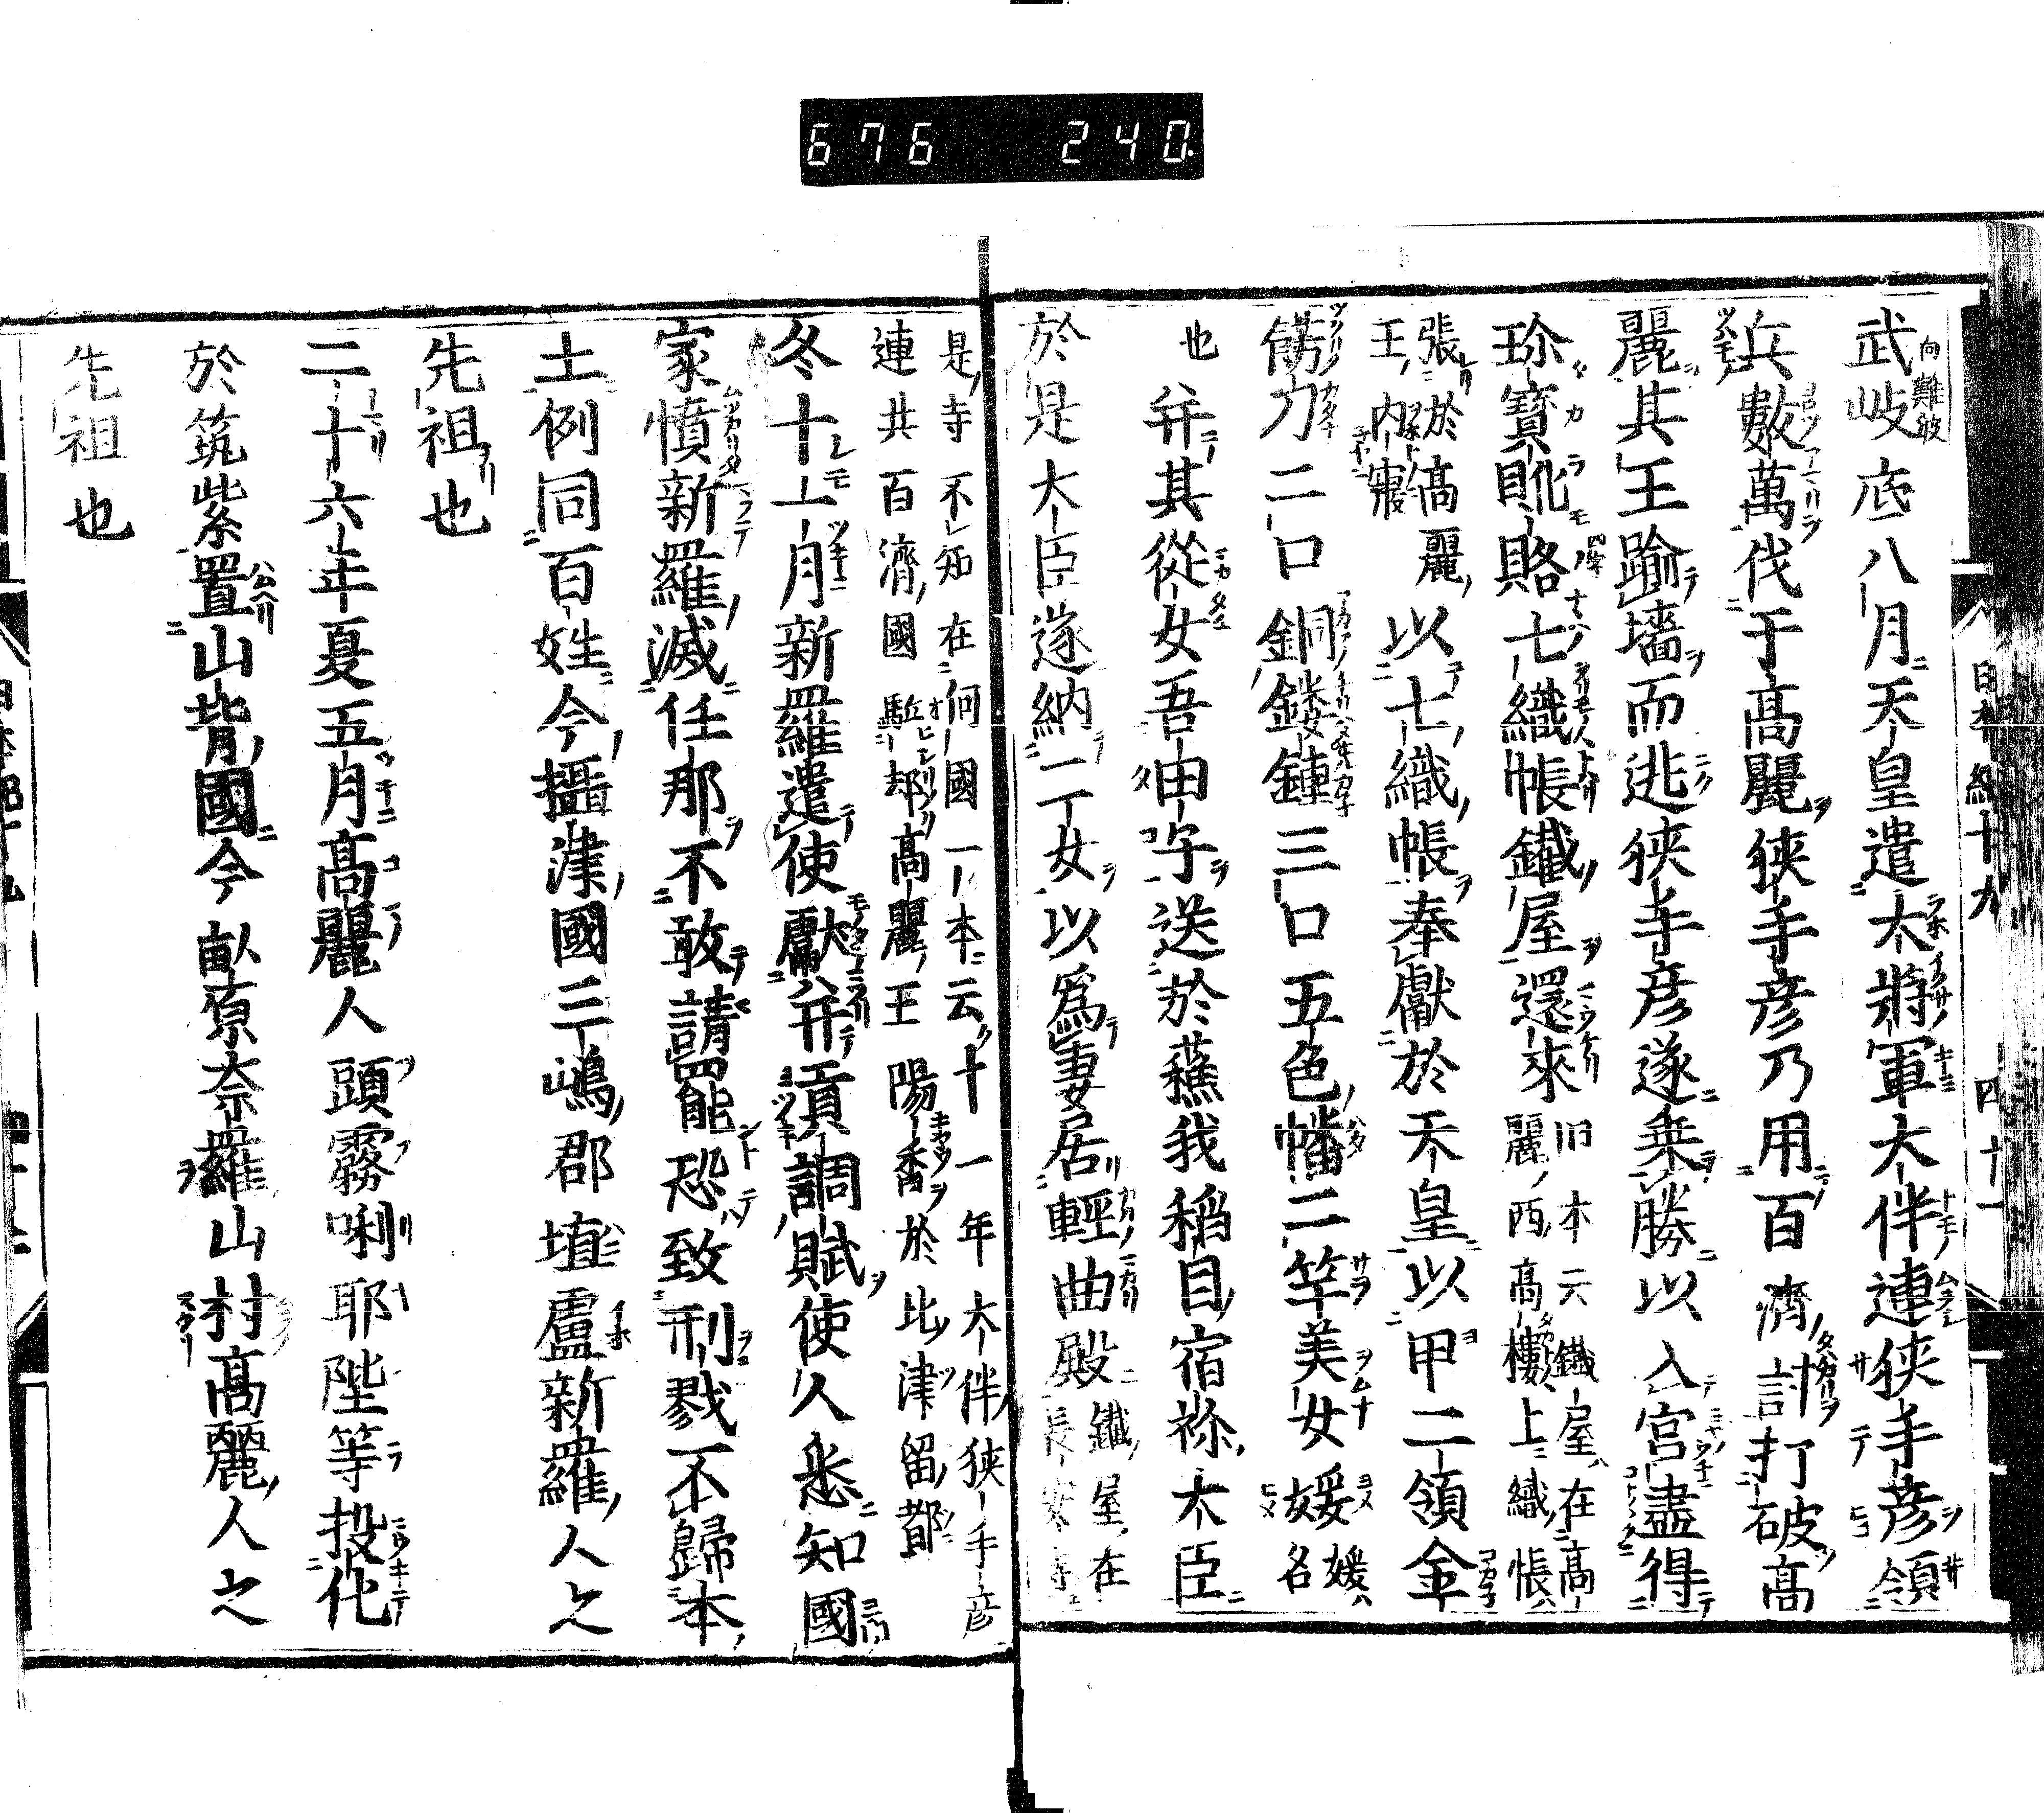 676 240
日本紀十九 四十一
武岐㡳八月天皇遣大將軍大伴連狹手彦領
向難波
兵數萬伐于髙麗狹手彦乃用百濟計打破髙
麗其王踰墻而逃狹手彦遂乗勝以入宮盡得
珎寶貨賂七織帳鐵屋還來
旧本云鐵屋在髙
麗西髙樓上織帳
張於髙麗
王内寢
以七織帳奉獻於天皇以甲二領金
餝刀二口銅鏤鍾三口五色幡二竿美女媛
媛名
也
幷其從女吾田子送於蘓我稻目宿祢大臣
於是大臣遂納二女以爲妻居輕曲殿
鐵屋在
長安寺
是寺不知在何國一本云十一年大伴狹手彦
連共百濟國駈却髙麗王陽香於比津留都
冬十一月新羅遣使獻幷貢調賦使人悉知國
家憤新羅滅任那不敢請罷恐致刑戮不歸本
土例同百姓今攝津國三嶋郡埴廬新羅人之
先祖也
二十六年夏五月髙麗人頭霧唎耶陛等投化
於筑紫置山背國今畝原奈羅山村髙麗人之
先祖也